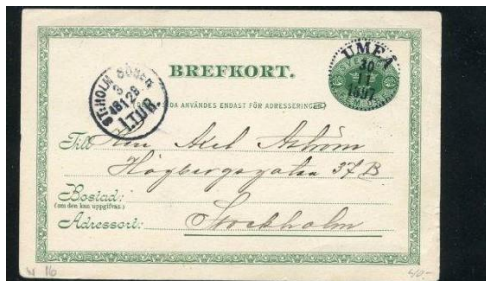 UMEÅ
30
11
1897
BREFKORT.
ST:HOLM SÖDER
1 TUR.
DA ANVÄNDES ENDAST FÖR ADRESSERINGEN.
Till Axel Åström
Högbergsgatan 37 B
Bostad:
(om den kan uppgifvas.)
Adressort: Stockholm